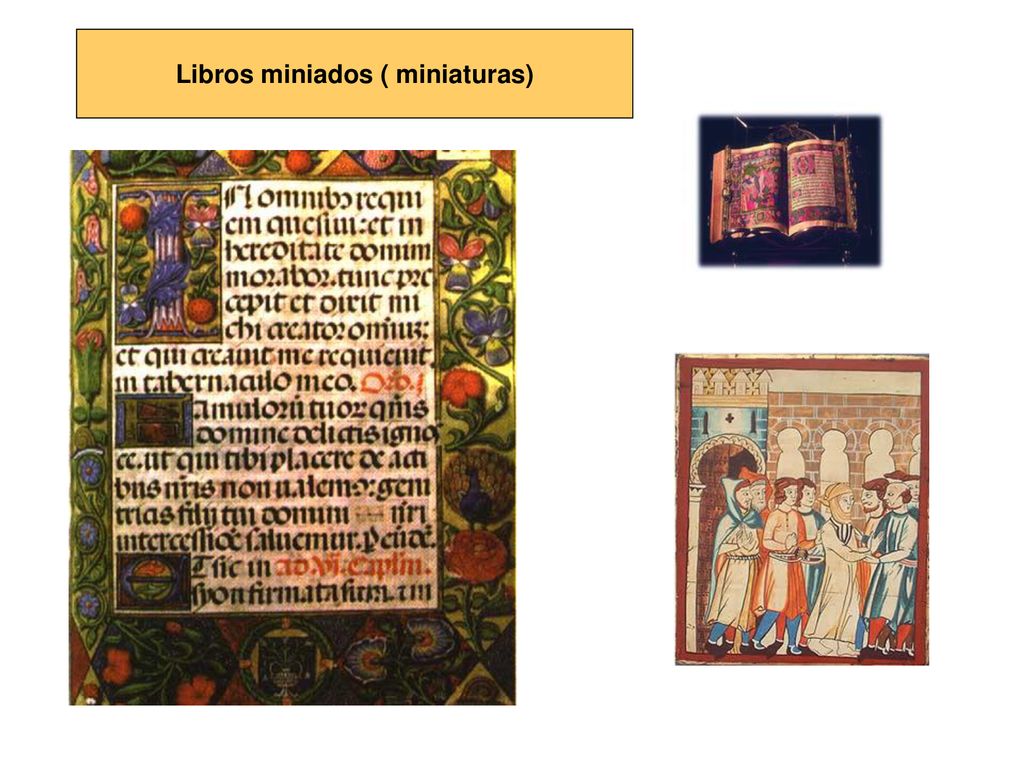 Libros miniados ( miniaturas)
N omnibꝰ requi
em quesiui: et in
hereditate domini
morabor. tunc pre
cepit et dixit mi
chi creator omniuȝ:
et qui creauit me requieuit
in tabernaculo meo. Oro.
amuloꝝ tuoꝝ qm̄s
domine delictis igno
ce. ut qui tibi placere de acti
bus nr̄is non ualemꝰ: geni
tricis filij tui domini nr̄i
intercessiōe saluemur. Per eūdē.
T sic in ad Vi. Capl'm.
firmata sum